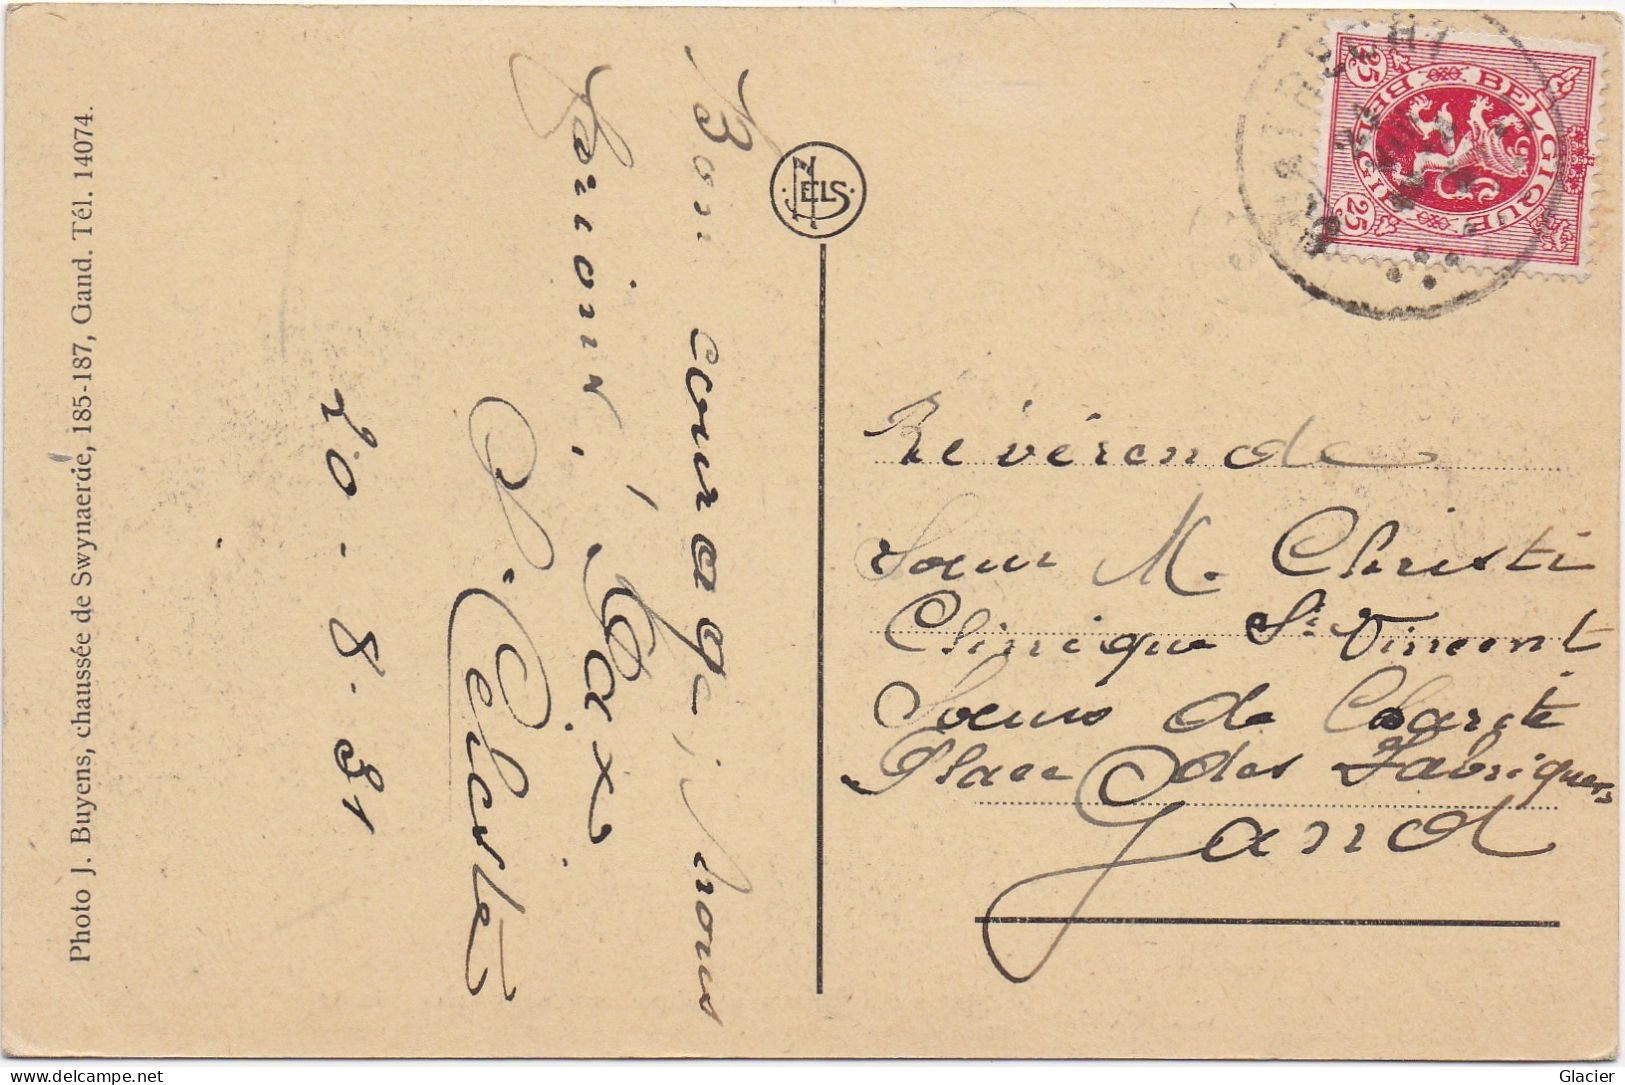 Photo J. Buyens, chaussée de Swynaerde, 185-187, Gand. Tél. 14074.
Bon courage, nous
prions,
S. Céleste
20-8-31
NELS
BELGIQUE
BELGIË
25
25
Révérende
Soeur M. Christi
Clinique St. Vincent
Soeurs de Charité
Place des Fabriques
Gand
Glacier